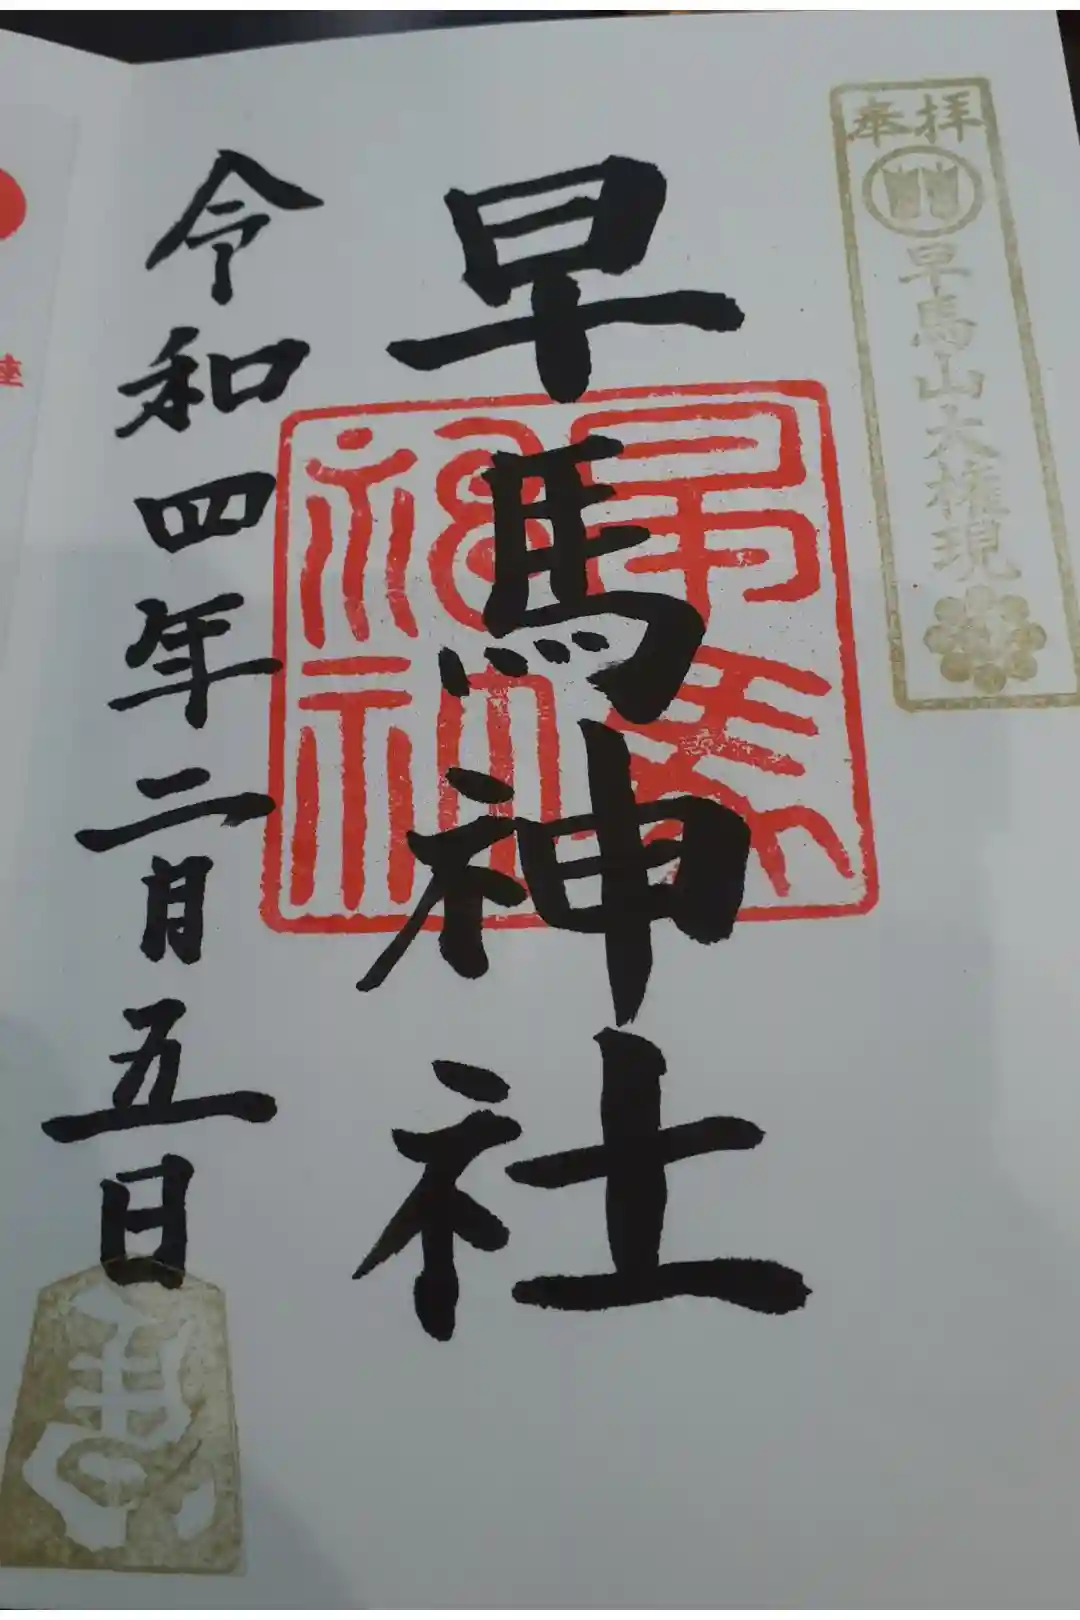 奉拝
早馬山大権現
早馬神社
早馬神社
令和四年二月五日
馬
座